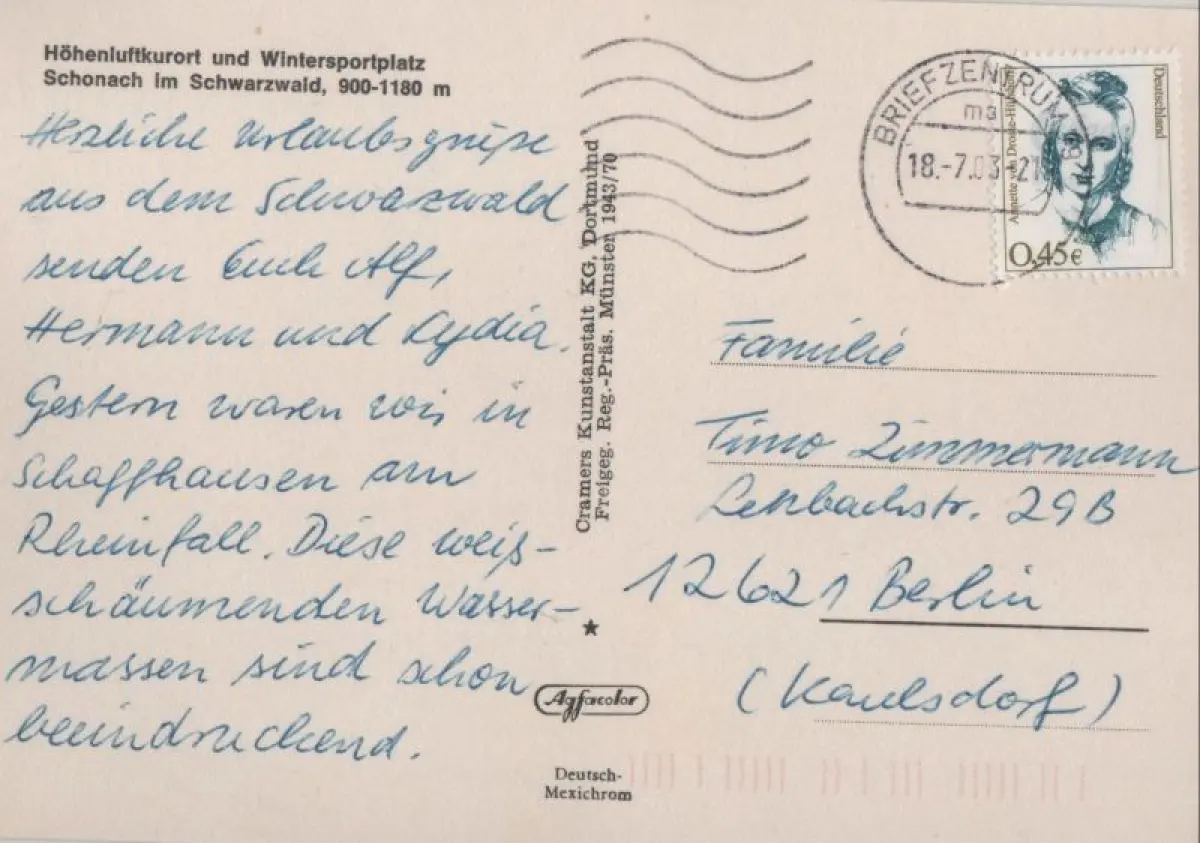 Höhenluftkurort und Wintersportplatz
Schonach im Schwarzwald, 900-1180 m
Herzliche Urlaubsgrüße
aus dem Schwarzwald
senden Euch Alf,
Hermann und Lydia.
Gestern waren wir in
Schaffhausen am
Rheinfall. Diese weiß-
schäumenden Wasser-
massen sind schon
beeindruckend.
Cramers Kunstanstalt KG, Dortmund
Freigeg. Reg.-Präs. Münster 1943/70
Agfacolor
Deutsch-
Mexichrom
BRIEFZENTRUM
ma
18.-7.03-21
Deutschland
Annette von Droste-Hülshoff
0,45€
Familie
Timo Zimmermann
29B
12621 Berlin
(Kaulsdorf)